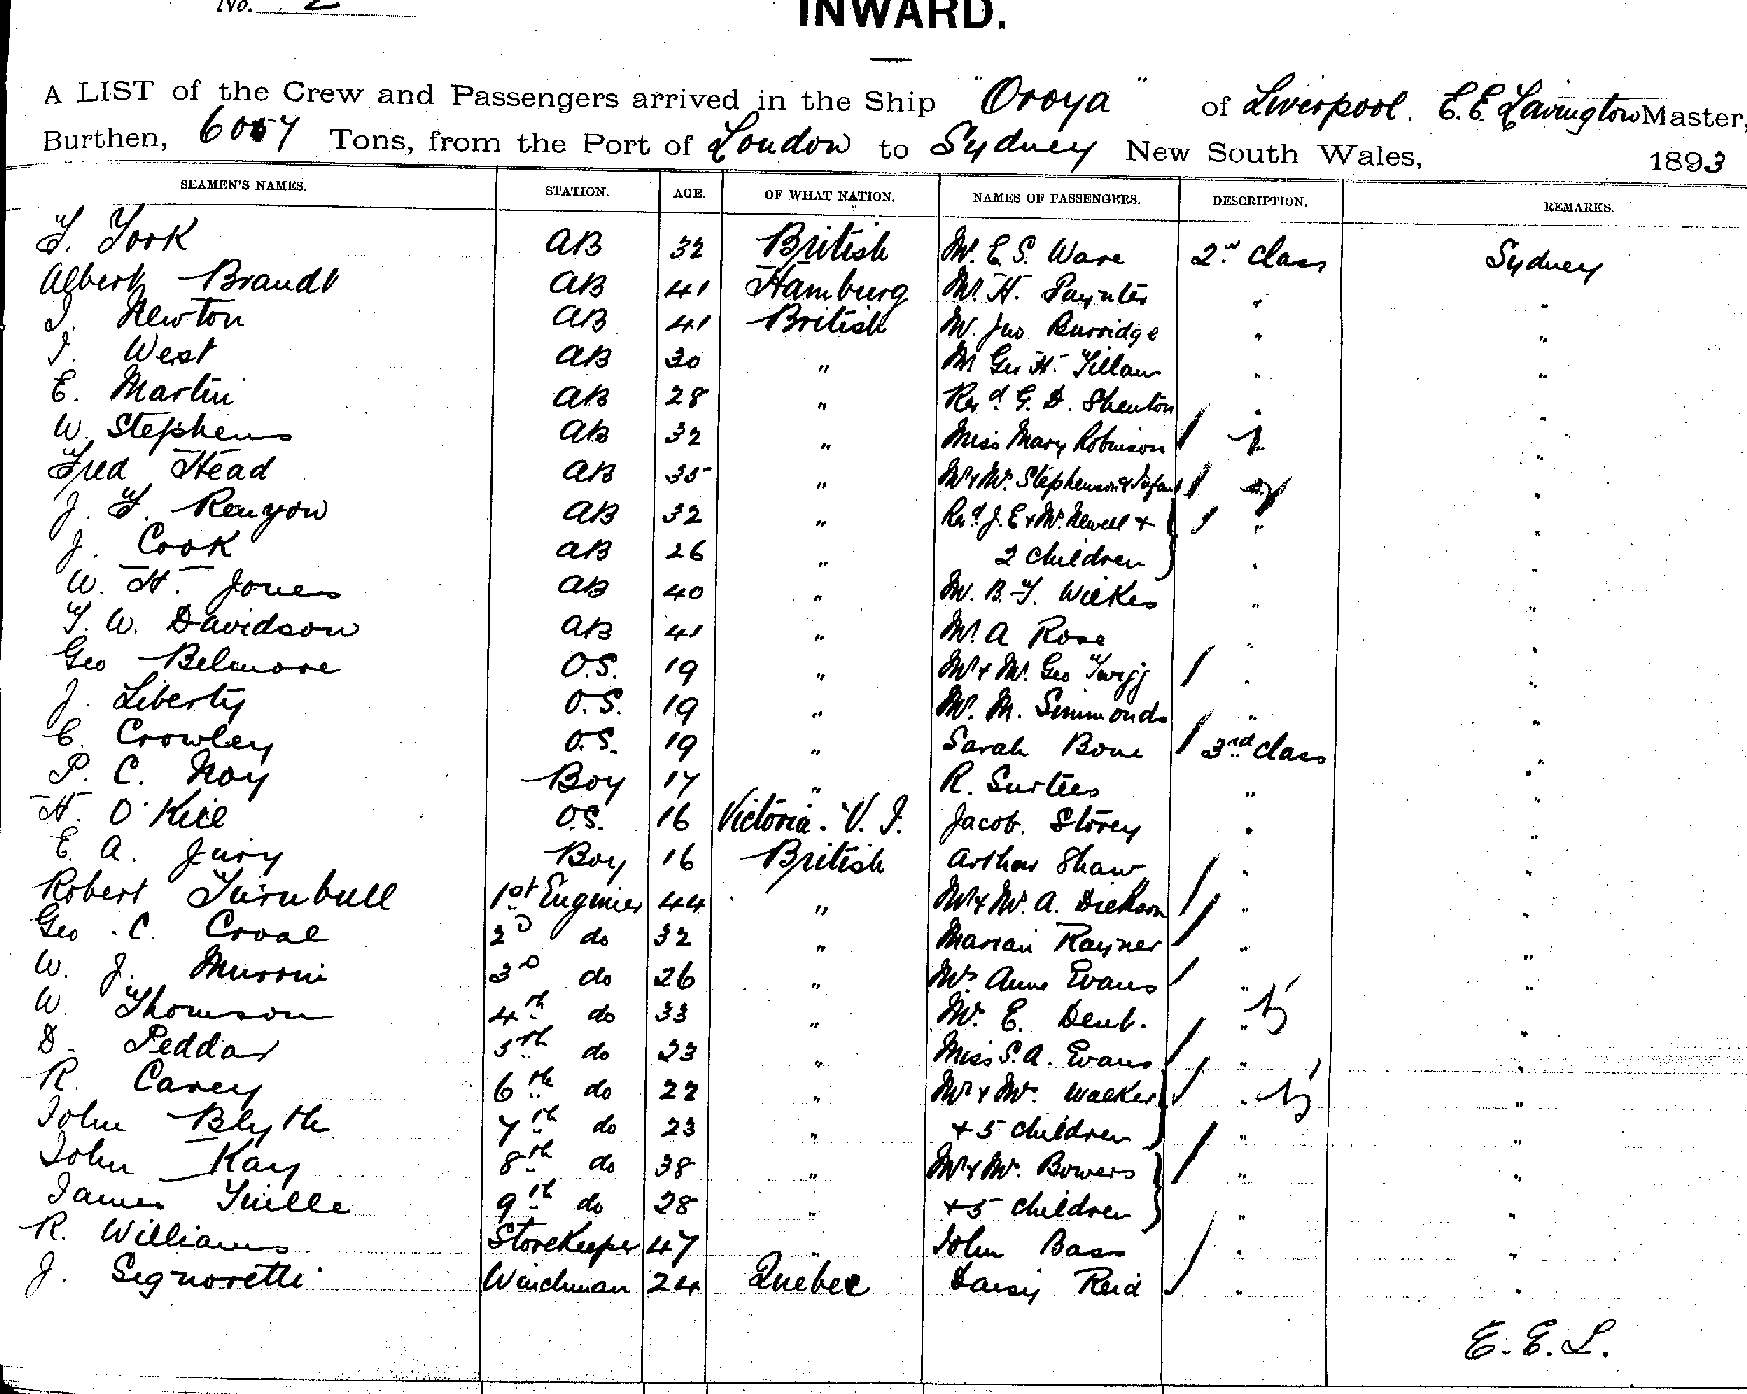 No. 2
INWARD.
A LIST of the Crew and Passengers arrived in the Ship "Oroya" of Liverpool. E. E. Lavington Master,
Burthen, 6057 Tons, from the Port of London to Sydney New South Wales, 1893
SEAMEN'S NAMES. STATION. AGE. OF WHAT NATION. NAMES OF PASSENGERS. DESCRIPTION. REMARKS.
T. York AB 32 British Mr. E. S. Ware 2nd Class Sydney
Albert Brandt AB 41 Hamburg Mr. H. Paynter " "
J. Newton AB 41 British Mr. Jno Burridge " "
J. West AB 30 " Mr Geo H. " "
E. Martin AB 28 " Revd. G. D. Shenton " "
W. Stephens AB 32 " Miss Mary Robinson "
Fred Head AB 35 " Mr & Mrs. Stephenson & Infant "
J. F. Kenyon AB 32 " Revd. J. E & Mrs. Newell & " "
J. Cook AB 26 " 2 children " "
W. H. Jones AB 40 " Mr. B. F. Wilkes " "
T. W. Davidson AB 41 " Mr. A Rose " "
Geo Belmore O.S. 19 " Mr & Mrs. Geo Twigg " "
J. Liberty O.S. 19 " Mr. M. Simmonds " "
C. Crowley O.S. 19 " Sarah Bone 3rd class "
P. C. Noy Boy 17 " R. Surtees " "
H. O'Kill O.S. 16 Victoria. V. I. Jacob. Storey " "
E. A. Jury Boy 16 British Arthur Shaw " "
Robert Turnbull 1st Engineer 44 " Mr & Mrs. A. Dickson " "
Geo. C. Croal 2D do 32 " Marian Rayner " "
W. J. 3D do 26 " Mrs Anne Evans " "
W Thomson 4th do 33 " Mr. E. Dent. " "
D. Peddar 5th do 23 " Miss S. A. Evans " "
R. Carey 6th do 22 " Mr & Mrs. Walker " "
John Blyth 7th do 23 " + 5 children " "
John Kay 8th do 38 " Mr & Mrs. Bowers " "
James Tuille 9th do 28 " + 5 children " "
R. Williams Storekeeper 47 " John Bass " "
J. Signoretti Winchman 24 Quebec Daisy Reid " "
E. E. L.